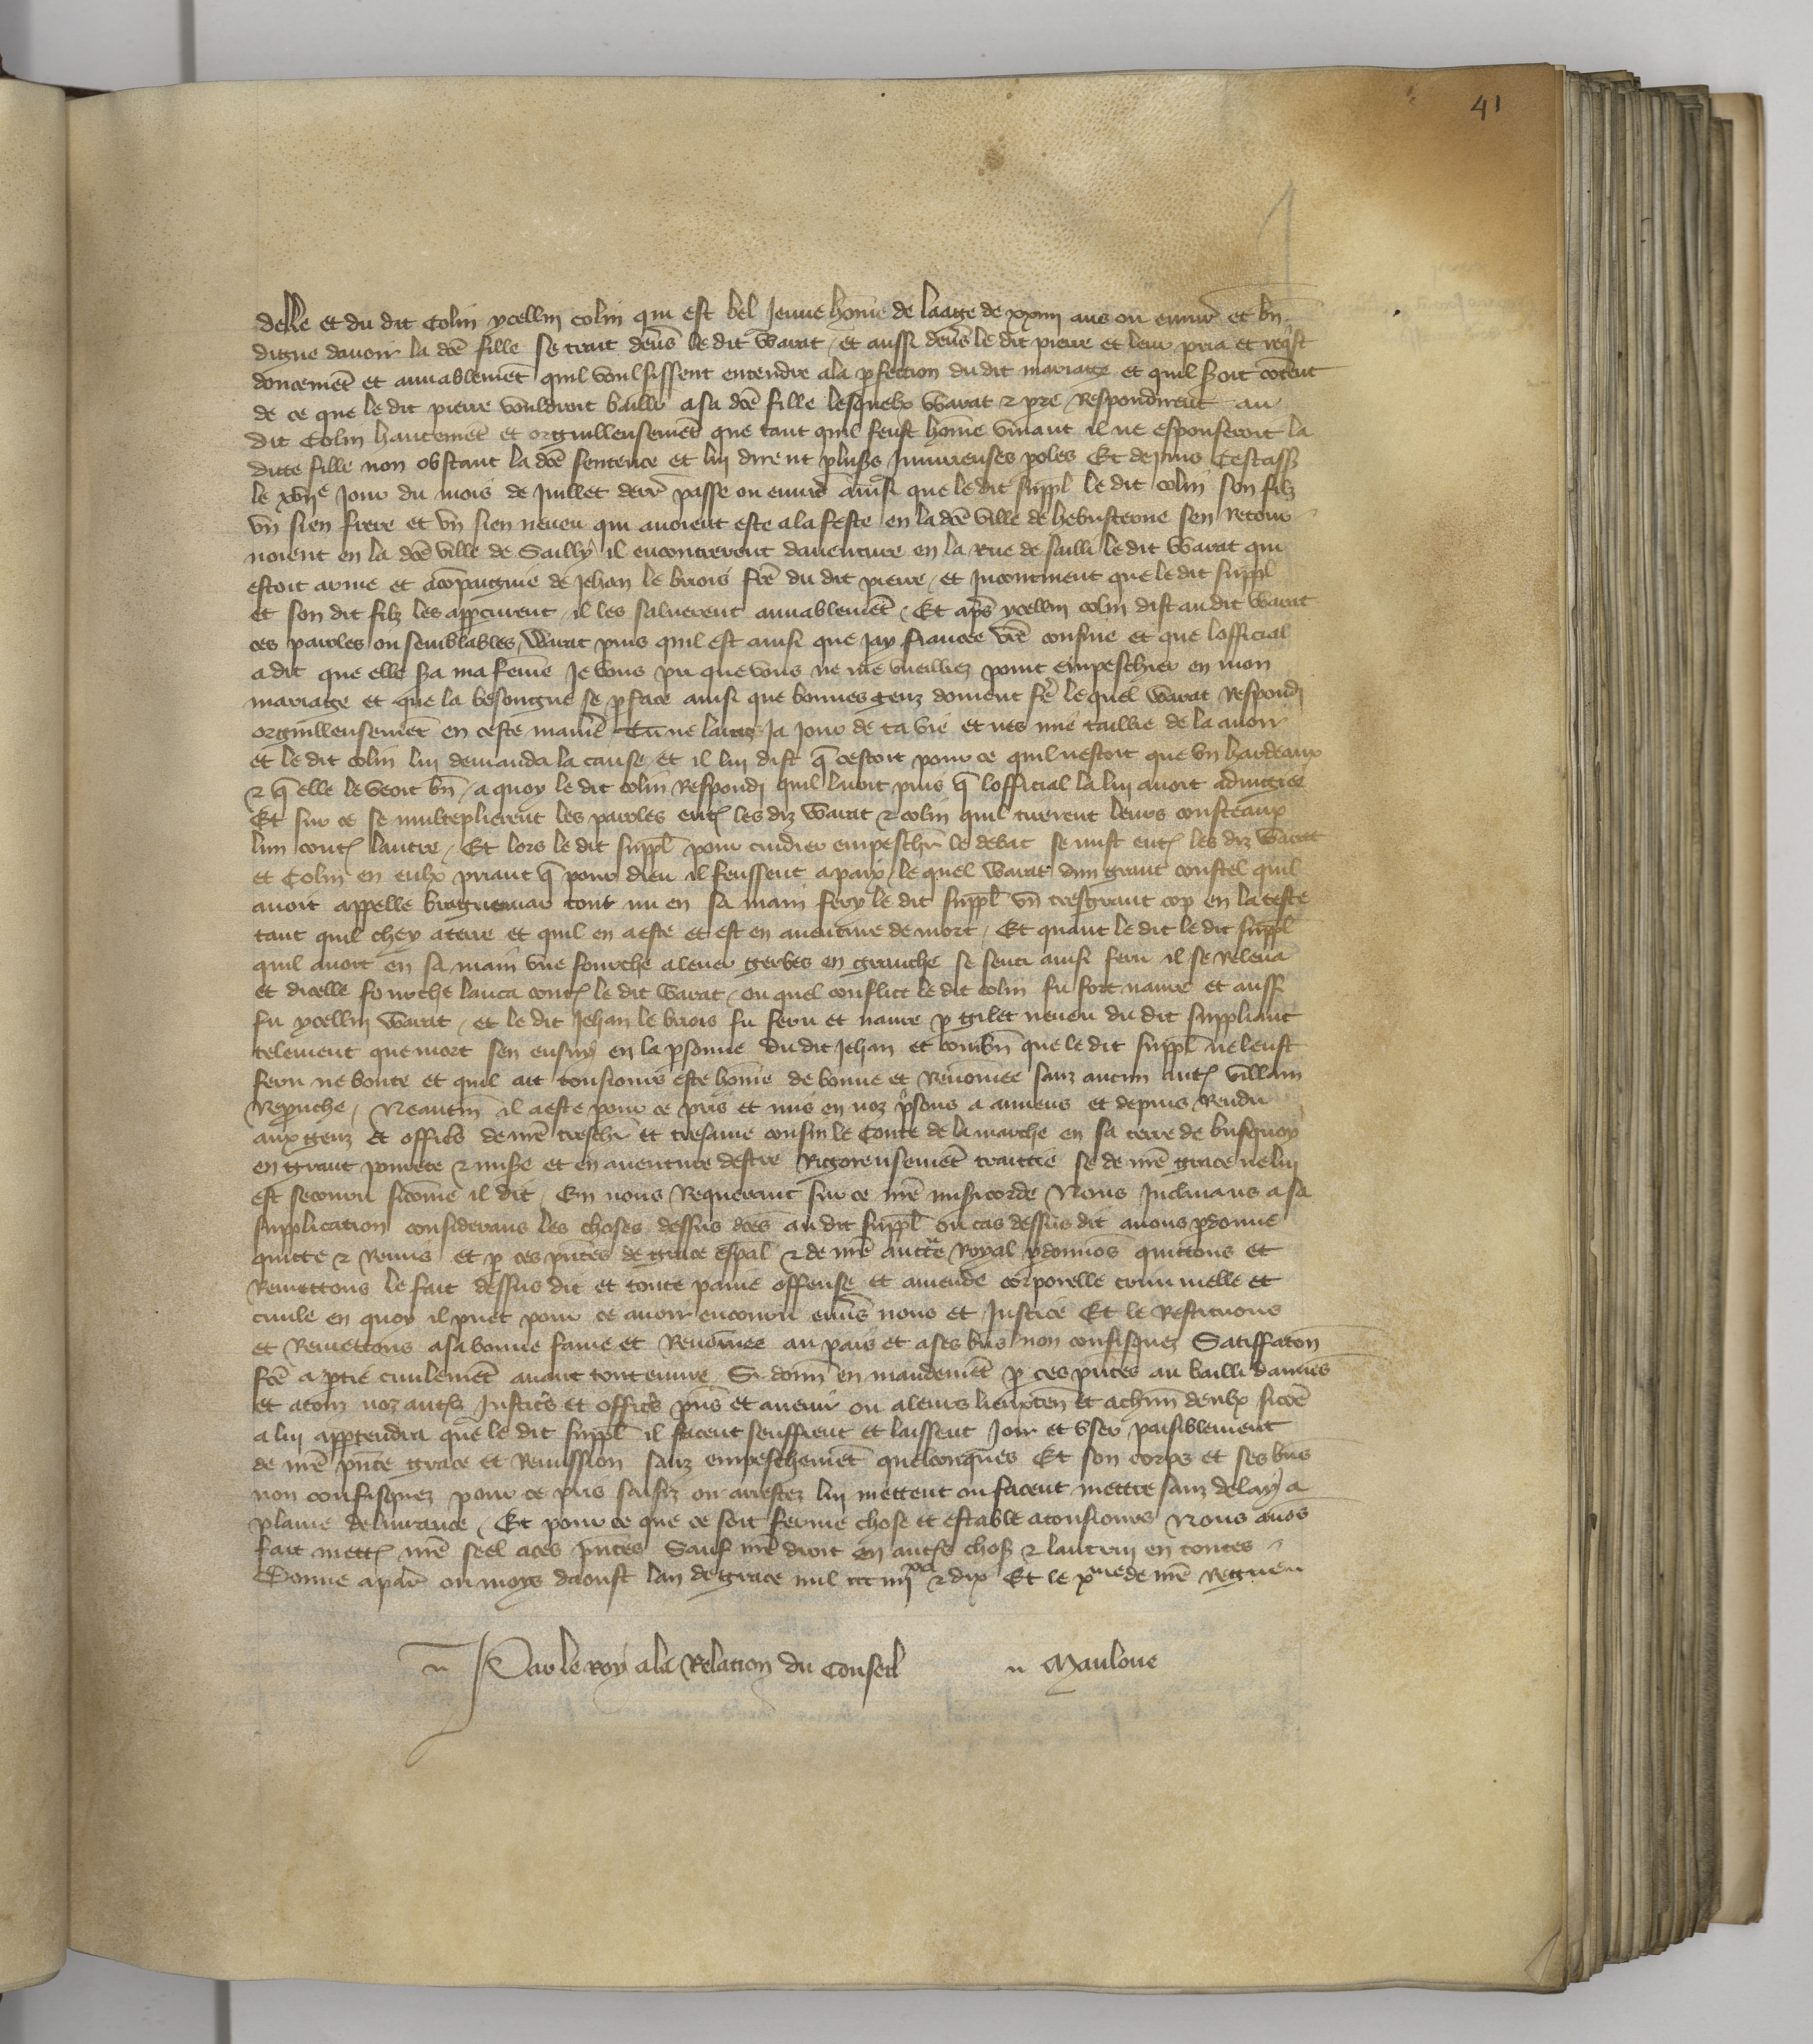 41
delle et du dit Colin ycellui colin qui est bel Jeune hōme de laage de xxiiii ans ou enuir̄ et bn̄
digne dauoir la dcē fille se trait deu̾s le dit Warat / et aussi deu̾s le dit pierre et leur pria et req̄st
doucemēt et amiablemēt quil voulsissent entendre ala p̱fection du dit mariage et quil seroit cōtent
de ce que le dit pierre vouldroit baillr̄ asa dcē fille lesquelx Warat ⁊ prē Respondirent au
dit Colin hautemēt et orguilleusemēt que tant quil feust hōme viuant il ne espouseroit la
ditte fille non obstant la dcē sentence et lui dirent plus̾s Iniurieuses p̱oles Et depuis Cestass̾
le xviiᵉ Jour du mois de Juillet derr̄ passe ou enuir̄ ainsi que le dit suppl̄ le dit colin son filz
vn̄ sien frere et vn̄ sien neueu qui auoient este ala feste en ladcē ville de hebusterne sen Retour
noient en la dcē ville de Sailly il encontrerent dauenture en la Rue de sailli le dit Warat qui
estoit arme et acōpaignie de Jehan le brois frē du dit pierre / et Incontinent que le dit suppl̄
et son dit filz les apꝑcurent / il les saluerent amiablemēt / Et ap̄s ycellui colin dist au dit Warat
ces paroles ou semblables / Warat puis quil est ainsi que Jay fiancee vrē cousine et que lofficial
a dit que elle s̾a ma feme Je vous pri que vous ne me vueilliez point empeschier en mon
mariage et que la besongne se p̱face ainsi que bonnes genz doiuent frē lequel Warat Respondi
orguilleusemēt en ceste manie᷑ Tu ne lauras Ja Jour de ta vie et nes mie taillie de la auoir
et le dit colin lui demanda la cause / et il lui dist q̄ cestoit pour ce quil nestoit que vn hardeaux
⁊ q̄ elle le veoit bn̄ / a quoy le dit colin Respondi quil lauroit puis q̄ lofficial la lui auoit adiugiee
Et sur ce se multeplierent les paroles entr̄ les diz Warat ⁊ colin quil tirerent leurs cousteaux
lun contr̄ lautre / Et lors le dit suppl̄ pour cuidier empeschr̄ le debat se mist entr̄ les diz Warat
et Colin en eulx priant q̄ pour dieu il feussent apaix / lequel Warat dun grant coustel quil
auoit appelle braguemar tout nu en sa main fery le dit suppl̄ vn̄ tresgrant cop en la teste
tant quil chey aterre et quil en aeste et est en auenture de mort / Et quant le dit le dit suppl̄
quil auoit en sa main vne fourche aleuer gerbes en granche se senti ainsi feru il se Releua
et dicelle fourche lanca contr̄ le dit Warat / ou quel conflict le dit colin fu fort naure et aussi
fu ycellui Warat / et le dit Jehan le brois fu feru et naure p̱ gilet neueu du dit suppliant
telement que mort sen ensuy en la p̱sonne du dit Jehan et combn̄ que le dit suppl̄ ne leust
feru ne boute et quil ait tousiours este hōme de bonne et Renōmee sanz aucun autr̄ villain
Reprouche / Neantm̄ il aeste pour ce pris et mis en noz p̱sons a amiens et depuis Rendu
aux genz et officrs̄ de nrē treschr̄ et tresame cousin le Conte de la marche en sa terre de busquoy
en grant pourete ⁊ mis̾e et en auenture destre Rigoreusemēt traittie se de nrē grace ne lui
est secouru sicōme il dit / En nous Requerant sur ce nrē mis̾icorde Nous Inclinans a sa
supplication considerans les choses dessus dcēs au dit suppl̄ ou cas dessus dit auons p̱donne
quitte ⁊ Remis et p̱ ces pn̄tes de grace esp̄al ⁊ de nrē auctē Royal p̱donnōs quittons et
Remettons le fait dessus dit et toute paine offense et amende corporelle criminelle et
ciuile en quoy il puet pour ce auoir encouru enu̾s nous et Justice Et le Restituons
et Remettons asa bonne fame et Renōmee au pais et ases bn̄s non confisquez Satiffatōn
fcē aptie ciuilemēt auant toutenure / Si donn̄ en mandemēt p̱ ces pn̄tes au bailli damiēs
et atom̄ noz autrs̄ Justics̄ et offics̄ pn̄s et auenir ou aleurs lieuxtēn et achun̄ deulx sicōe
a lui apꝑtendra que le dit suppl̄ il facent seuffrent et laissent Joir et vser paisiblement
de nrē pn̄te grace et Remission sanz empeschemēt quelconques Et son corps et ses bn̄s
non confisquez pour ce pris saisiz ou arrestez lui mettent ou facent mettre sanz delay a
plaine deliurance / Et pour ce que ce soit ferme chose et estable atousiours Nous auōs
fait mettr̄ nrē seel aces pn̄tes Sauf nrē droit en autrs̄ chos̾ ⁊ lautrui en toutes
Donne apar̄ ou moys daoust lan de grace mil ccc iiii^xx ⁊ dix Et le x^me de nrē Regne
Par le Roy ala Relation du Conseil Mauloue